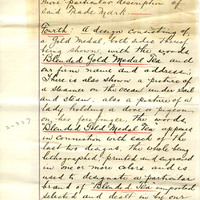 more particular description of
said Trade Mark.
Fourth: A design consisting of
a Gold Medal, both sides thereof
being shown, with the words
Blended Gold Medal Tea and
our firm name and address.
There is also shown a picture of
a Steamer on the ocean under Sail
and Steam, also a picture of a
lady holding a dove or pigeon,
on her forefinger. The words,
Blended Gold Medal Tea appear
in connection with each of the
last two designs. The whole being
lithographed, printed and engraved
in one or more colors and is
used to designate a particular
brand of "Blended Tea" imported
selected and dealt in by our